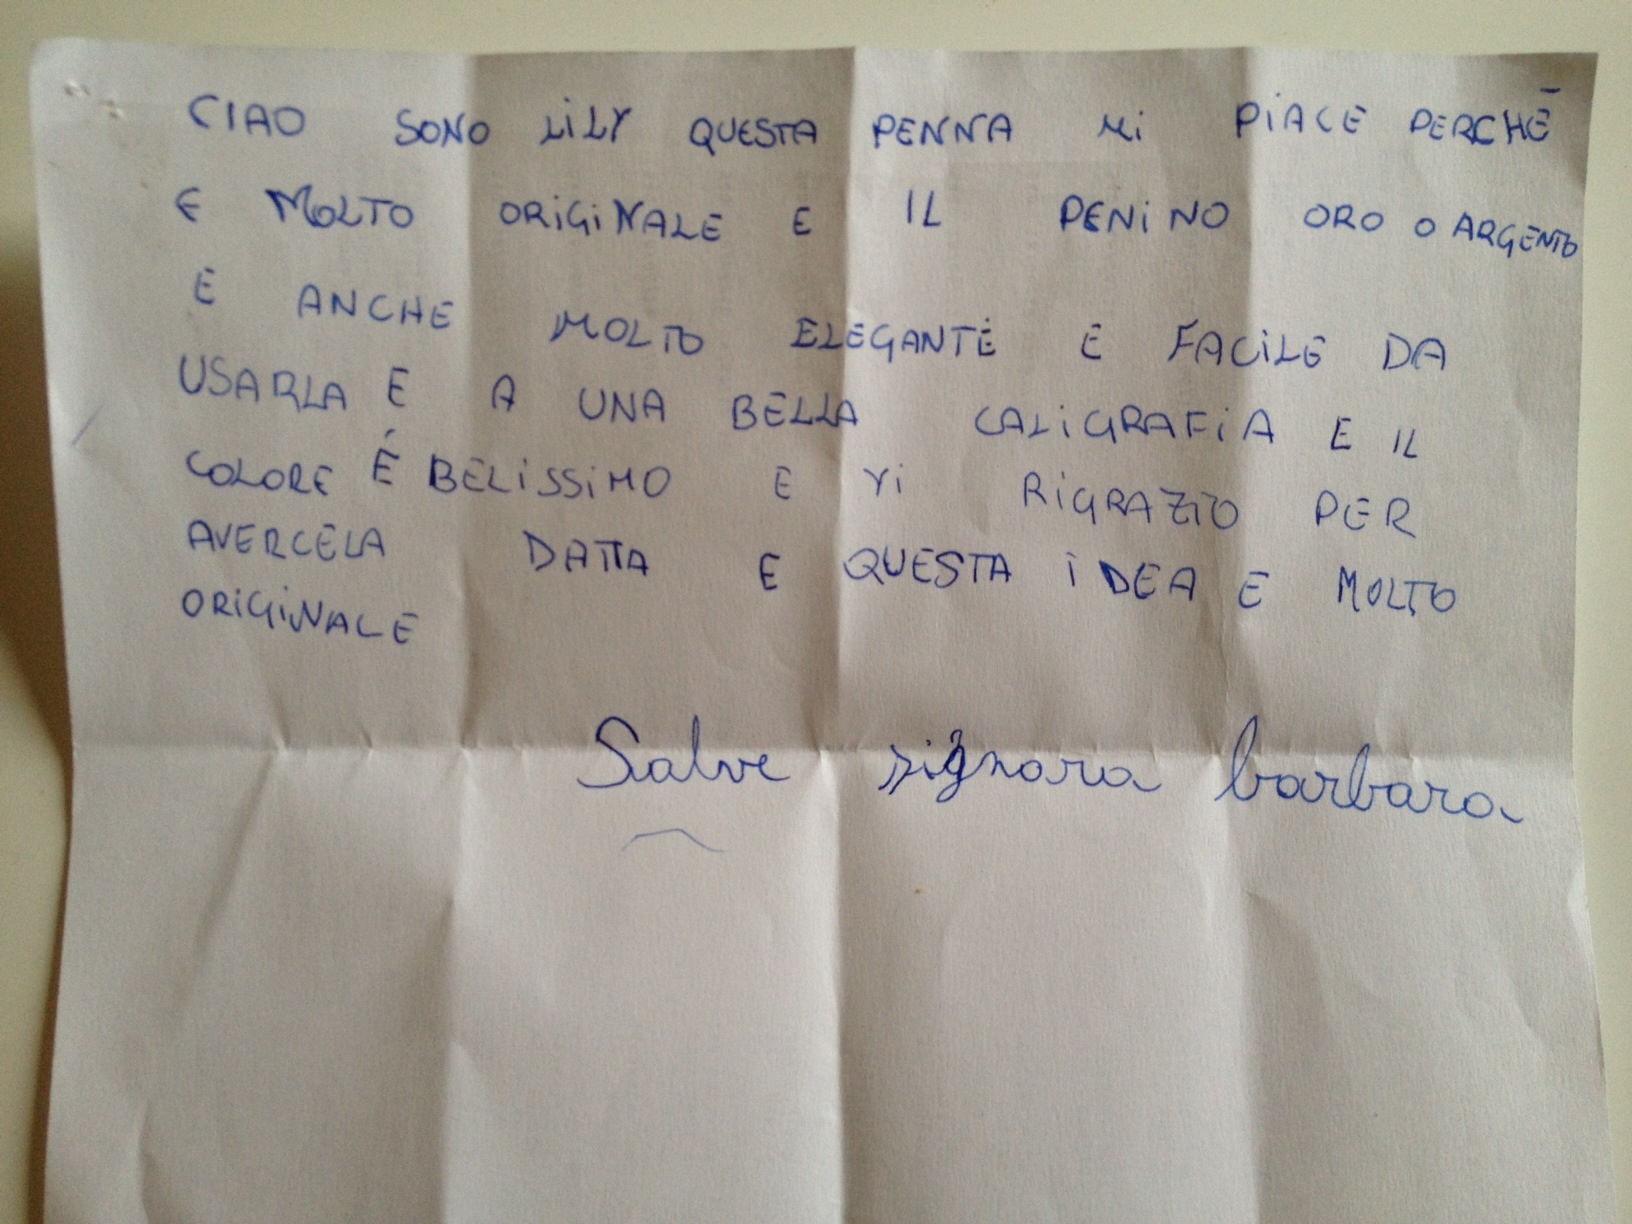 CIAO SONO LILY QUESTA PENNA MI PIACE PERCHÉ
E MOLTO ORIGINALE E IL PENINO ORO O ARGENTO
E ANCHE MOLTO ELEGANTE E FACILE DA
USARLA E A UNA BELLA CALIGRAFIA E IL
COLORE É BELISSIMO E VI RIGRAZIO PER
AVERCELA DATTA E QUESTA IDEA E MOLTO
ORIGINALE
Salve signora barbara